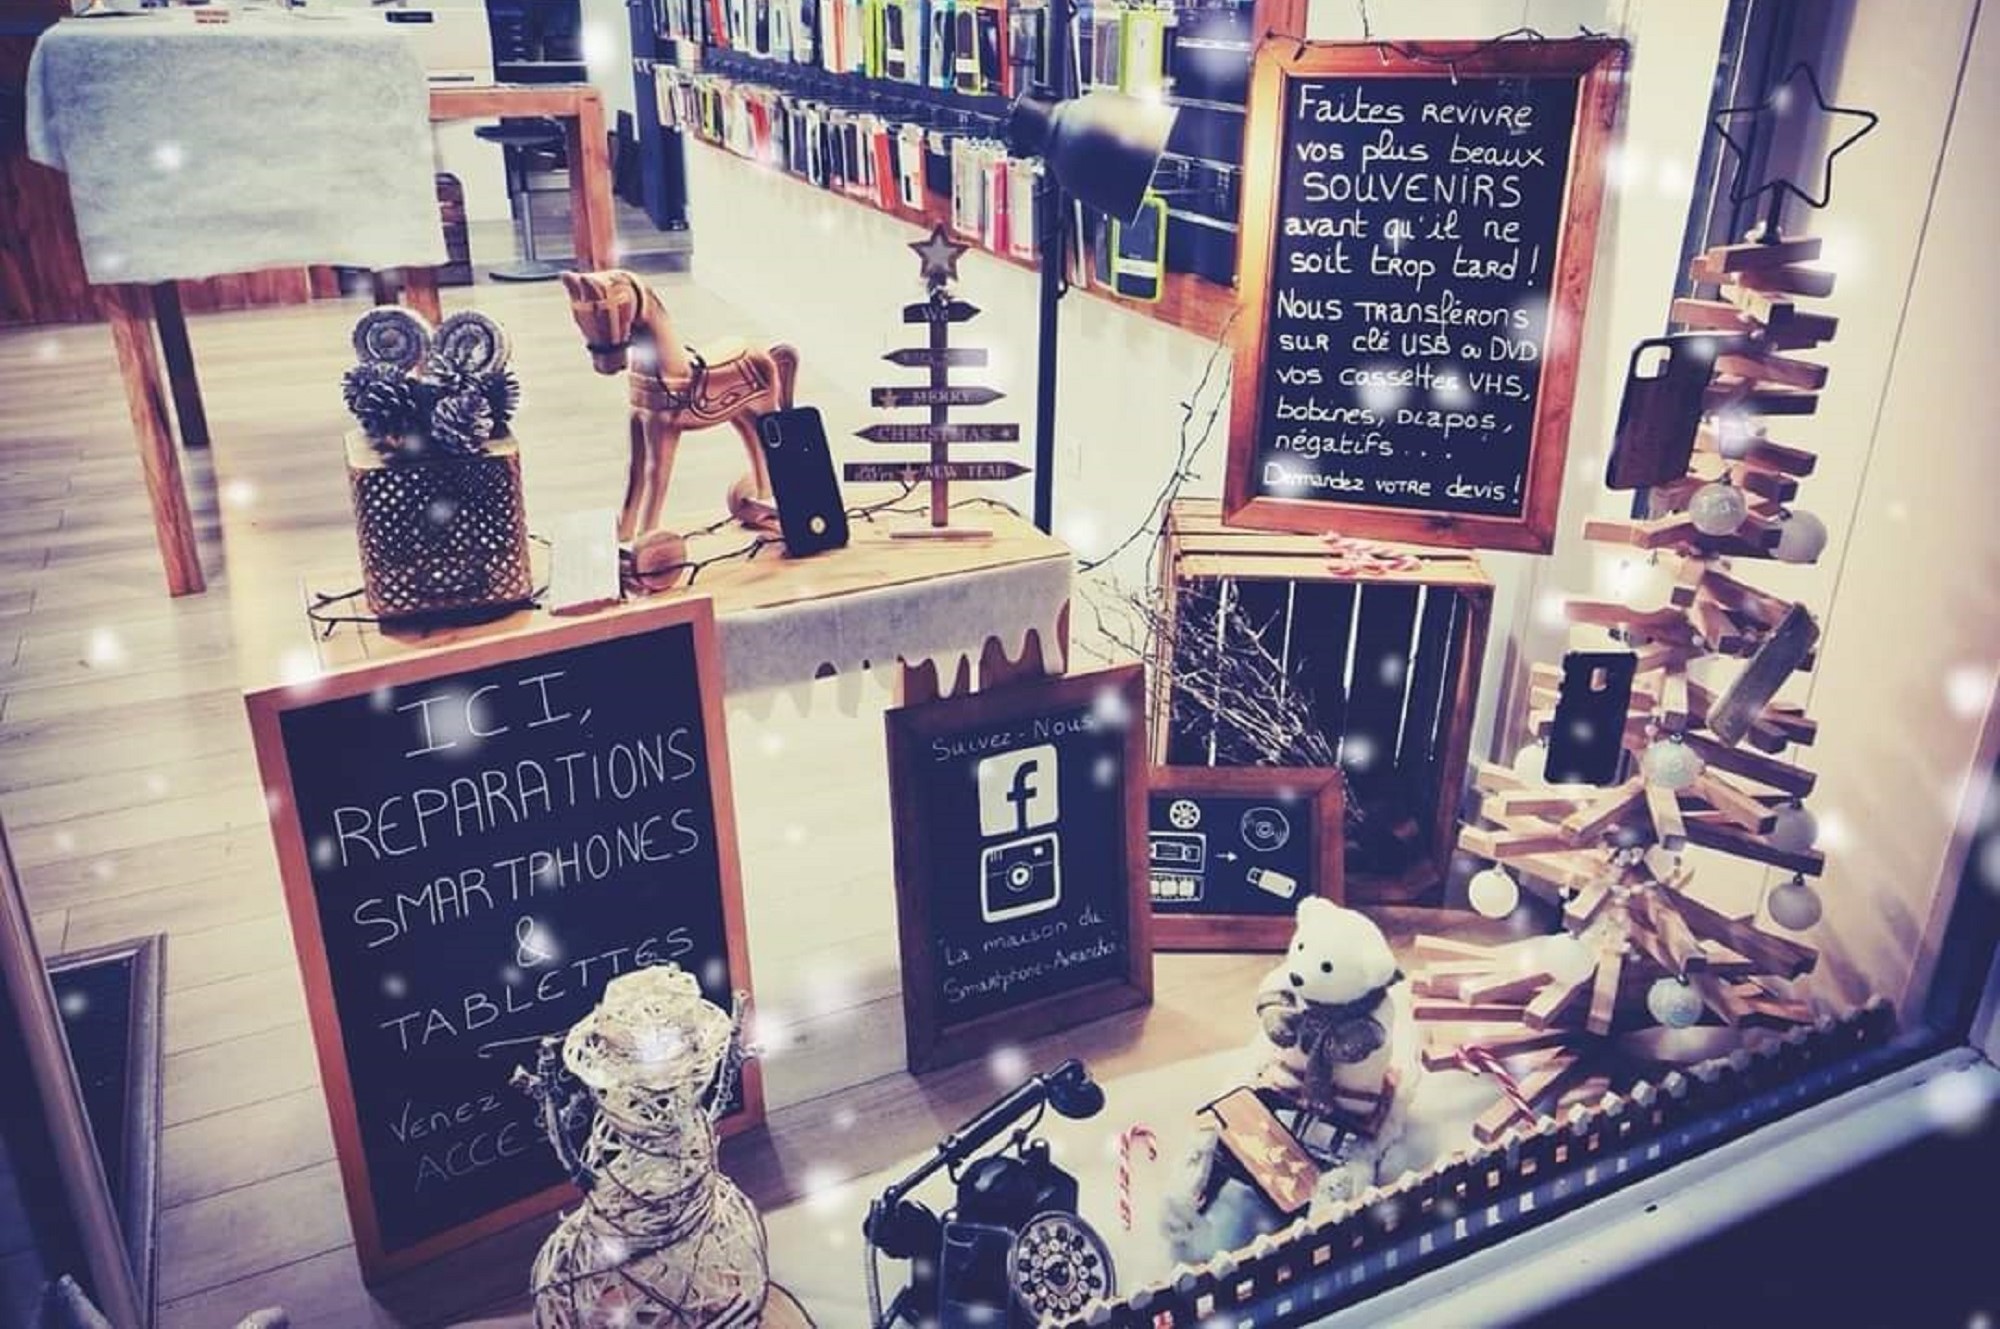 Faites REVIVRE
vos plus beaux
SOUVENIRS
avant qu'il ne
soit trop tard !
Nous transférons
sur clé USB ou DVD
vos cassettes VHS,
bobines, DIAPOS,
négatifs...
Demandez votre devis !
We
MERRY
CHRISTMAS
NEW YEAR
ICI,
REPARATIONS
SMARTPHONES
&
TABLETTES
Venez
ACCE
Suivez-Nous
f
"La maison du
Smartphone-Avranches"